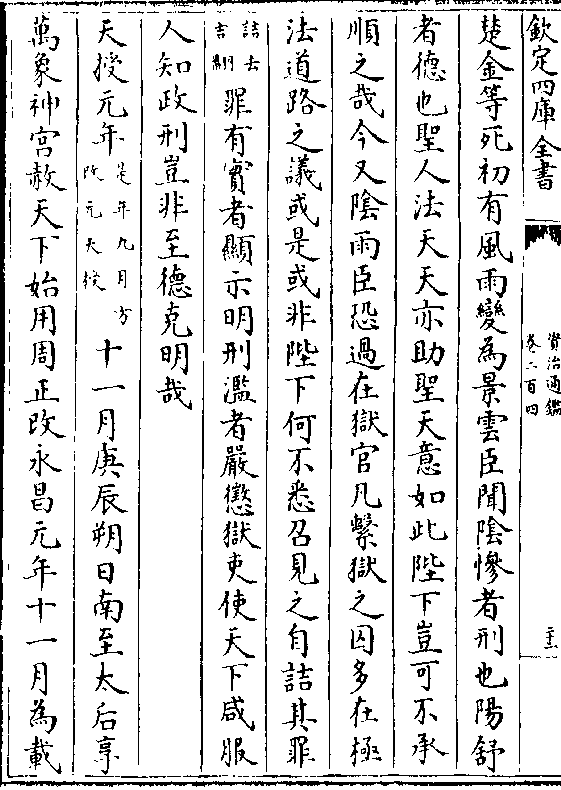 欽定四庫全書
資治通鑑
卷二百四
楚金等死初有風雨變為景雲臣聞陰慘者刑也陽舒
者德也聖人法天天亦助聖天意如此陛下豈可不承
順之哉今又陰雨臣恐過在獄官凡繫獄之囚多在極
法道路之議或是或非陛下何不悉召見之自詰其罪
詰去
吉翻
罪有實者顯示明刑濫者嚴懲獄吏使天下咸服
人知政刑豈非至德克明哉
天授元年
是年九月方
改元天授
十一月庚辰朔日南至太后享
萬象神宫赦天下始用周正改永昌元年十一月為載